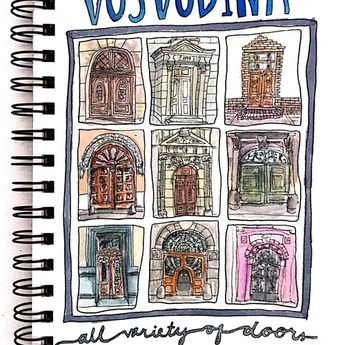 VOJVODINA
all variety of doors